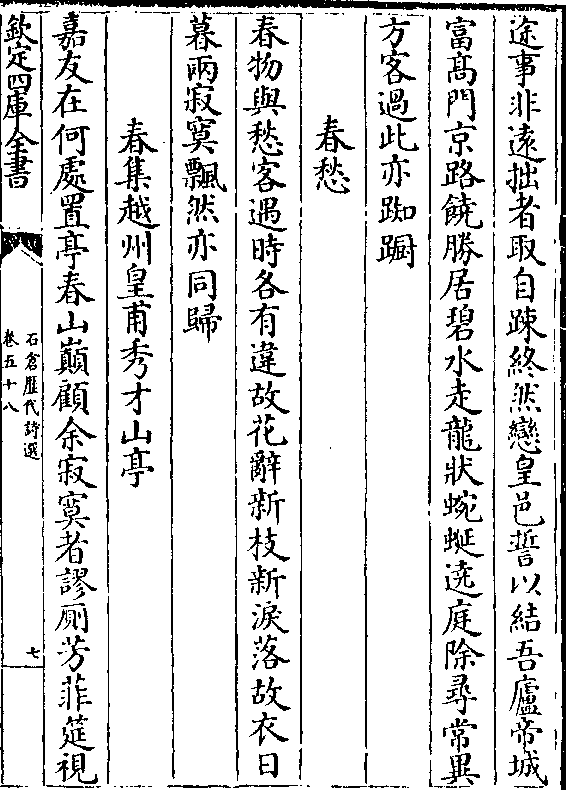 途事非逺拙者取自踈終然戀皇邑誓以結吾廬帝城
富髙門京路饒勝居碧水走龍狀蜿蜒遶庭除尋常異
方客過此亦踟蹰
春愁
春物與愁客遇時各有違故花辭新枝新淚落故衣日
暮兩寂寞飄然亦同歸
春集越州皇甫秀才山亭
嘉友在何處置亭春山巔顧余寂寞者謬厠芳菲筵視
欽定四庫全書
石倉歴代詩選
卷五十八
七